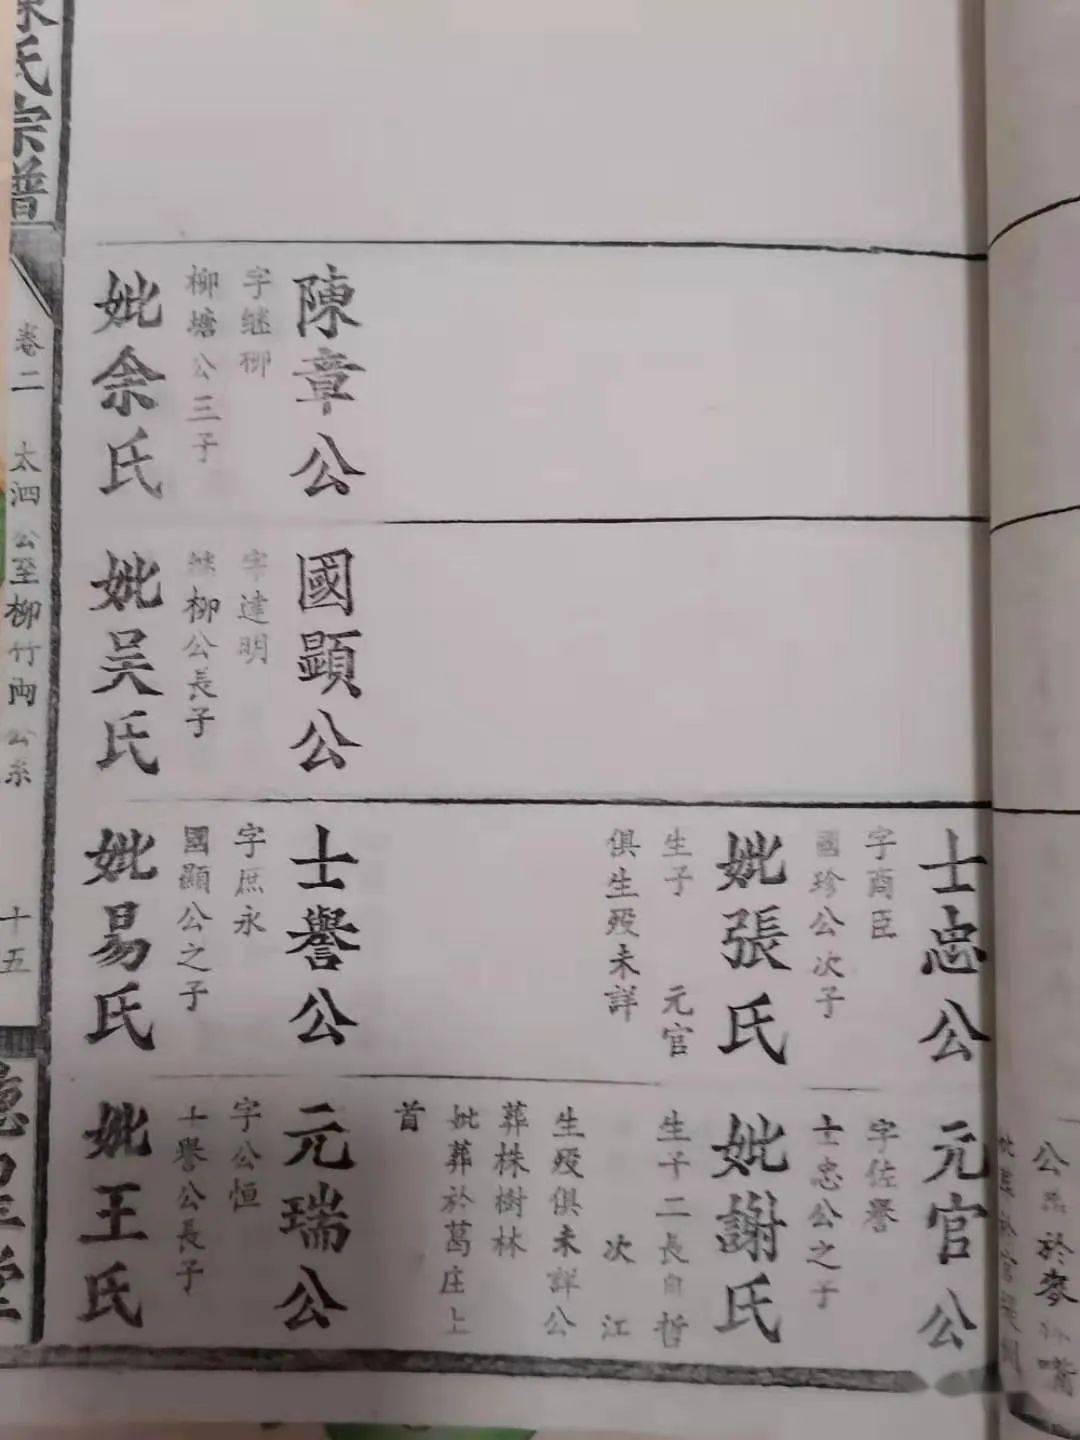 士忠公
字商臣
國珍公次子
妣張氏
生子 元官
俱生殁未詳
元官公
字佐譽
士忠公之子
妣謝氏
生子二長自哲
次江
生殁俱未詳公
葬株樹林
妣葬於葛庄上
首
陳章公
字継柳
柳塘公三子
妣余氏
國顕公
字達明
継柳公長子
妣吴氏
士譽公
字庶永
國顕公之子
妣易氏
元瑞公
字公恒
士譽公長子
妣王氏
陳氏宗譜
卷二 太泗公至柳竹両公系 十五